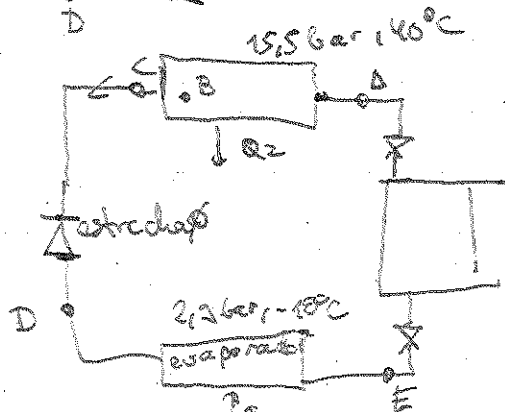 D
15,5 bar, 40°C
C
B
A
Q2
D
2,9 bar, -18°C
evaporat
E